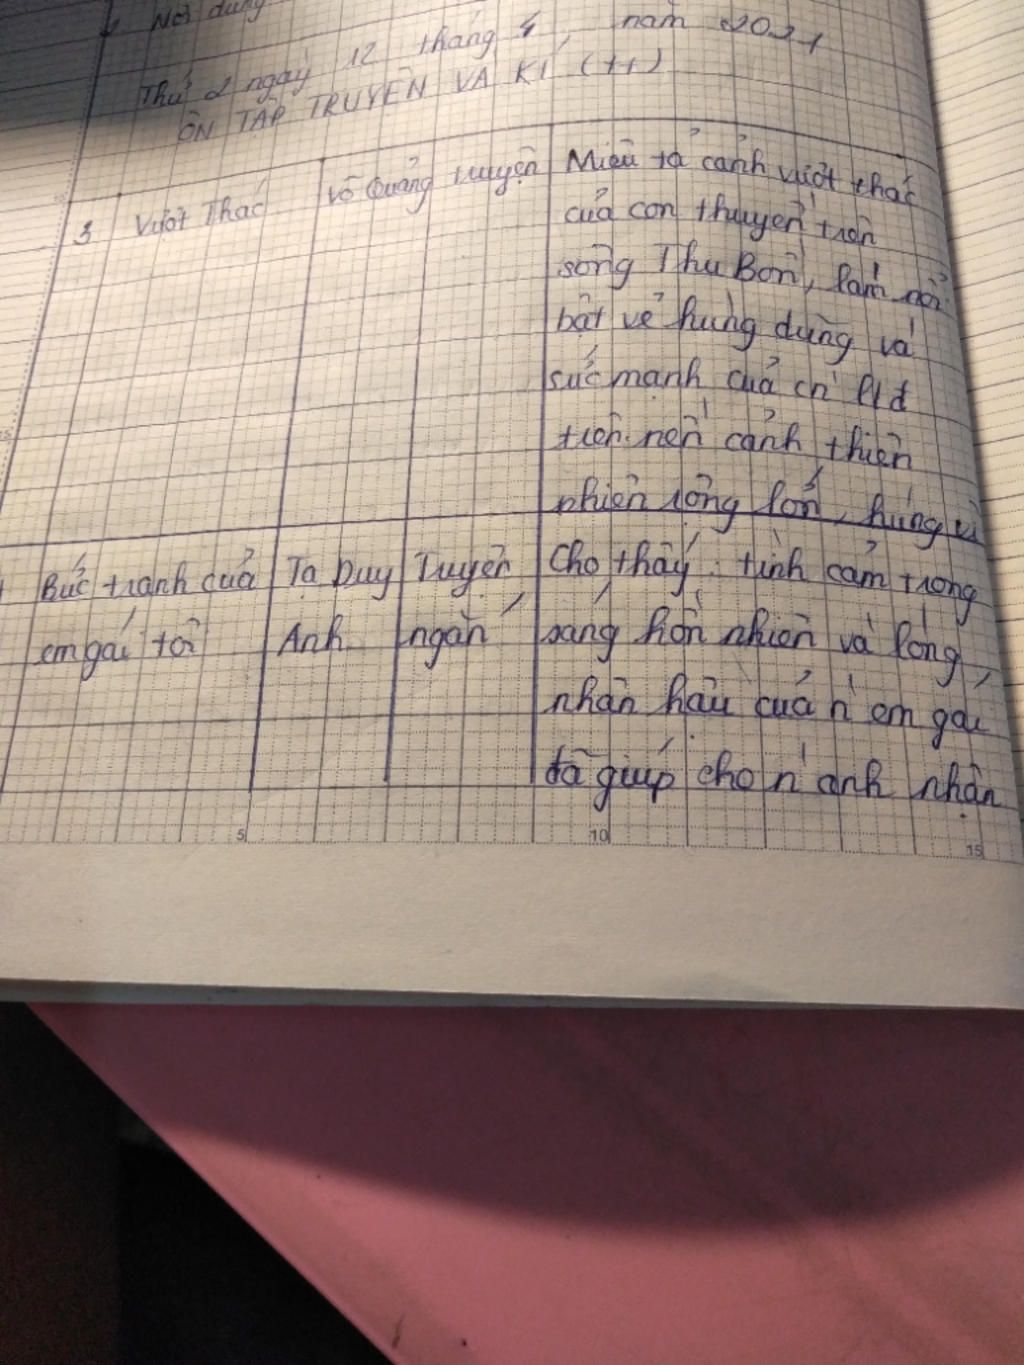 Nội dung
Thứ 2 ngày 12 tháng 4, năm 2021
ÔN TẬP TRUYỆN VÀ KÍ (tt)
3 Vượt Thác Võ Quảng truyện Miêu tả cảnh vượt thác
của con thuyền trên
sông Thu Bồn, làm nổi
bật vẻ hùng dũng và
sức mạnh của cn' lđ
trên nền cảnh thiên
nhiên rộng lớn, hùng vĩ
Bức tranh của Tạ Duy Truyện Cho thấy tình cảm trong
em gái tôi Anh ngắn sáng hồn nhiên và lòng
nhân hậu của n' em gái
đã giúp cho n' anh nhận
5 10 15